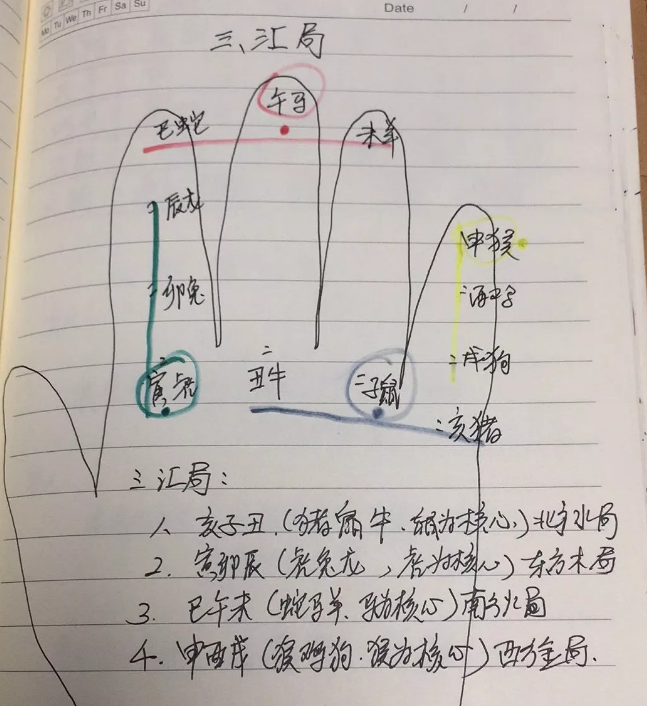 Mo Tu We Th Fr Sa Su
Date / /
三、汇局
午马
巳蛇
未羊
辰龙
申猴
卯兔
酉鸡
戌狗
寅虎
丑牛
子鼠
亥猪
三汇局：
1、亥子丑（猪鼠牛、鼠为核心）北方水局
2. 寅卯辰（虎兔龙，虎为核心）东方木局
3. 巳午未（蛇马羊、马为核心）南方火局
4. 申酉戌（猴鸡狗.猴为核心）西方金局.